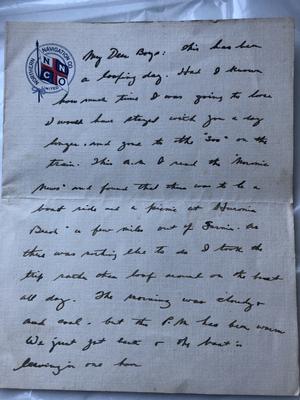 NORTHERN NAVIGATION CO. LIMITED
N N C O
My Dear Boys: This has been
a loafing day. Had I known
how much time I was going to lose
I would have stayed with you a day
longer and gone to the "Soo" on the
train. This A.M I read the Morning
News and found that there was to be a
boat ride and a picnic at Huronia
Beach a few miles out of Sarnia. As
there was nothing else to do I took the
trip rather than loaf around on the boat
all day. The morning was cloudy
and cool. but the P.M has been warm
We just got back & the boat is
leaving in one hour